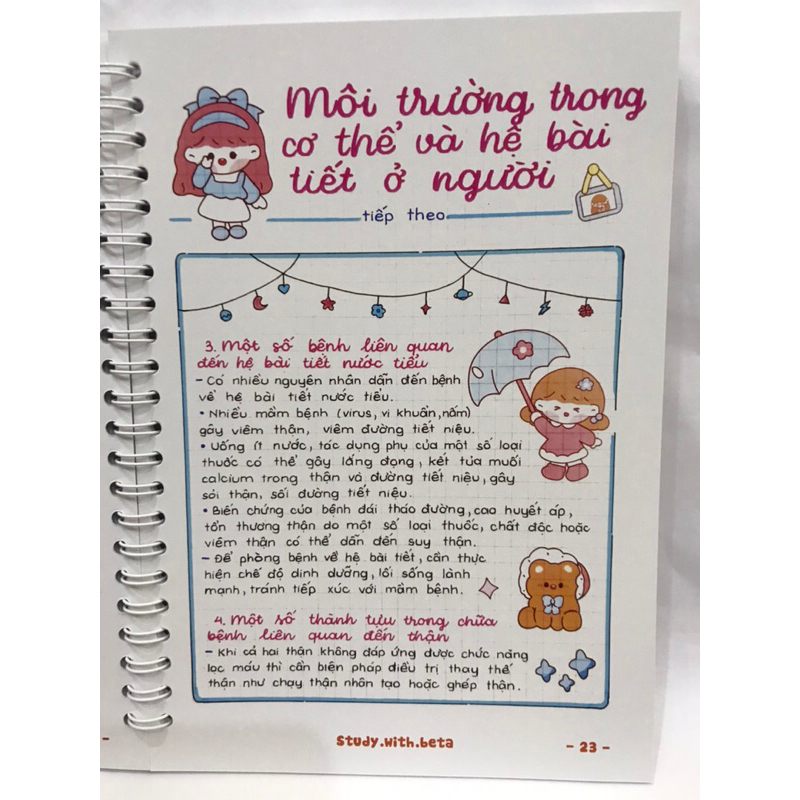 Môi trường trong
cơ thể và hệ bài
tiết ở người
tiếp theo
3. Một số bệnh liên quan
đến hệ bài tiết nước tiểu
- Có nhiều nguyên nhân dẫn đến bệnh
về hệ bài tiết nước tiểu.
• Nhiều mầm bệnh (virus, vi khuẩn, nấm)
gây viêm thận, viêm đường tiết niệu.
• Uống ít nước, tác dụng phụ của một số loại
thuốc có thể gây lắng đọng, kết tủa muối
calcium trong thận và đường tiết niệu, gây
sỏi thận, sỏi đường tiết niệu.
• Biến chứng của bệnh đái tháo đường, cao huyết áp,
tổn thương thận do một số loại thuốc, chất độc hoặc
viêm thận có thể dẫn đến suy thận.
- Để phòng bệnh về hệ bài tiết, cần thực
hiện chế độ dinh dưỡng, lối sống lành
mạnh, tránh tiếp xúc với mầm bệnh.
4. Một số thành tựu trong chữa
bệnh liên quan đến thận
- Khi cả hai thận không đáp ứng được chức năng
lọc máu thì cần biện pháp điều trị thay thế
thận như chạy thận nhân tạo hoặc ghép thận.
Study.with.beta
- 23 -